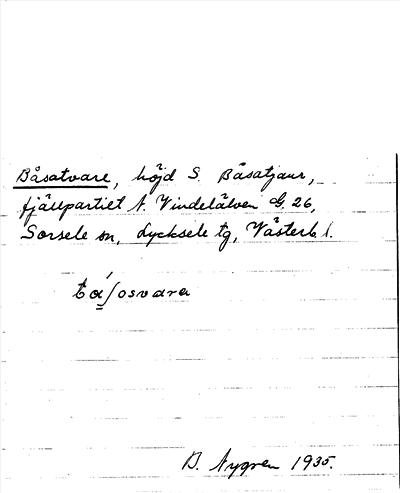 Båsatvare, höjd S. Båsatjaur,
fjällpartiet N. Vindelälven G. 26,
Sorsele sn, Lycksele tg, Västerb. l.
B. Nygren 1935.